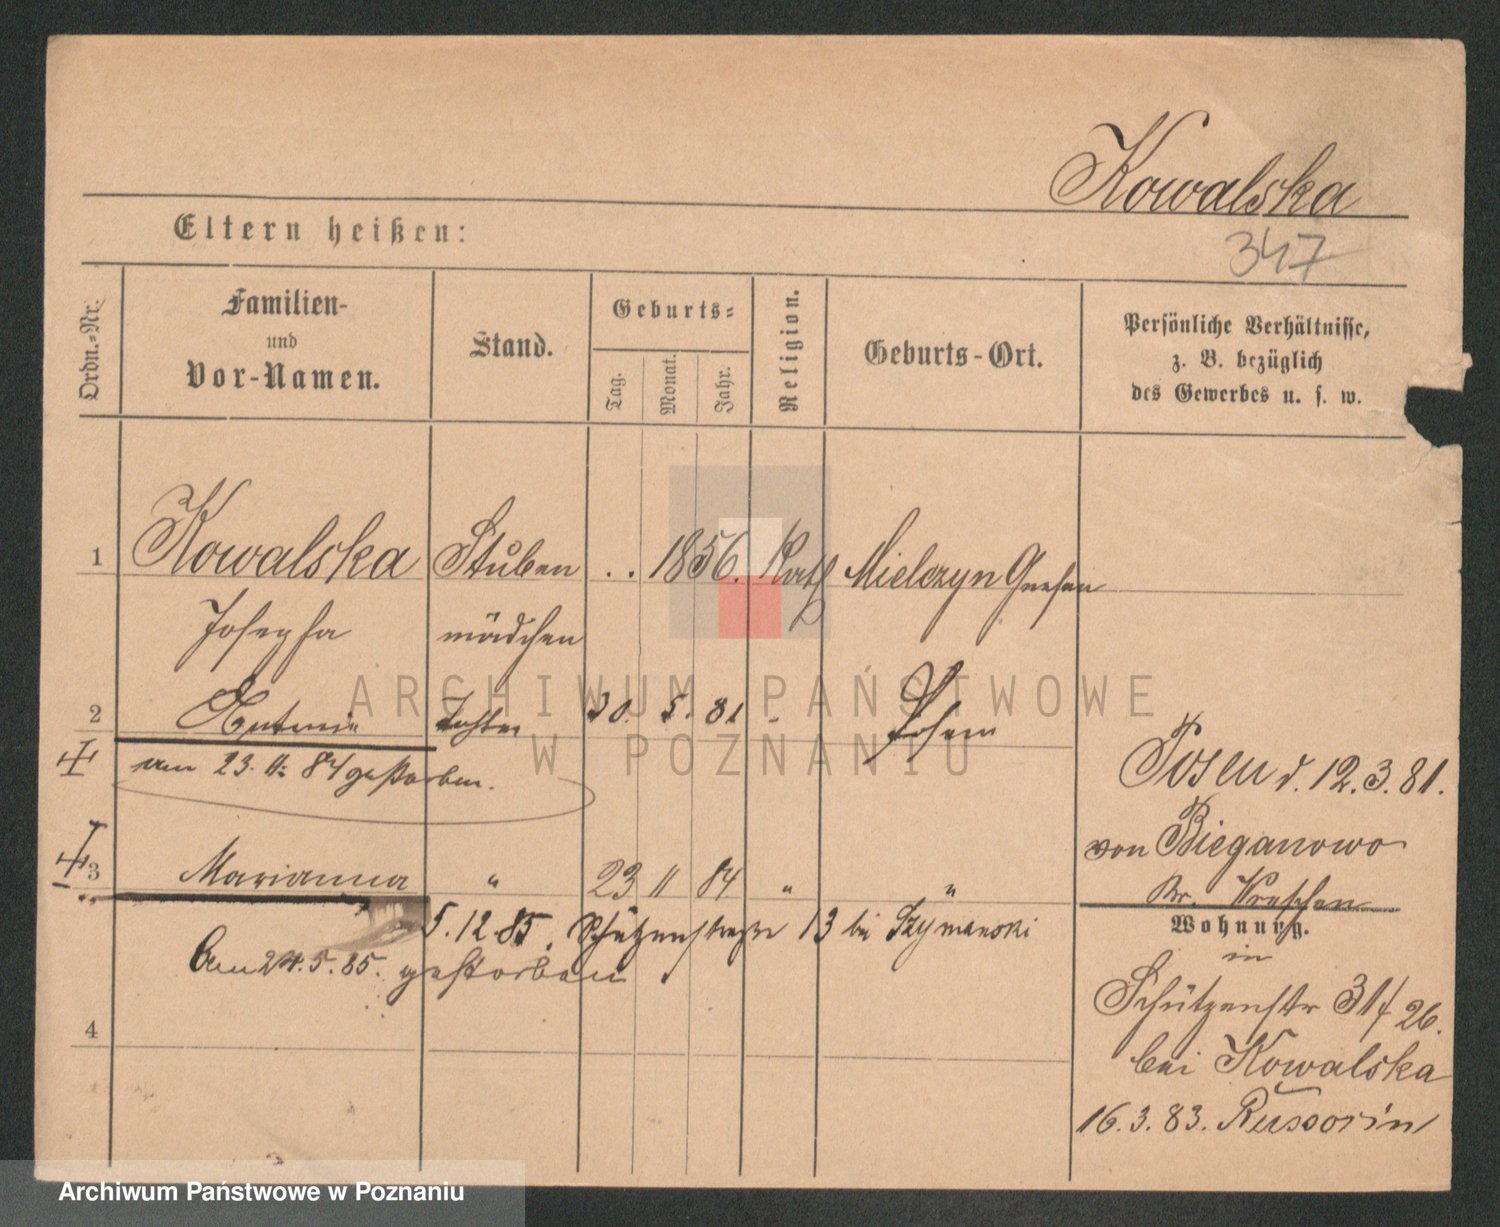 Kowalska
347
Eltern heißen:
Ordn.-Nr.
Familien-
und
Vor-Namen.
Stand.
Geburts-
Tag.
Monat.
Jahr.
Religion.
Geburts-Ort.
Persönliche Verhältnisse,
z. B. bezüglich
des Gewerbes u. s. w.
1 Kowalska Stuben . . 1856. Kath Mielczyn Gnesen
Josepha mädchen
2 Tochter 30. 5. 81 - Posen
am 23. 11. 84 gestorben.
Posen d. 12.3.81.
von Bieganowo
Kr. Wreschen
3 Marianna " 23 11 84 " "
5.12.85. Schützenstraße 13 bei Szymanski
Am 24.5.85. gestorben
Wohnung.
in
Schützenstr 31/26.
bei Kowalska
16.3.83.
4
ARCHIWUM PAŃSTWOWE
W POZNANIU
Archiwum Państwowe w Poznaniu